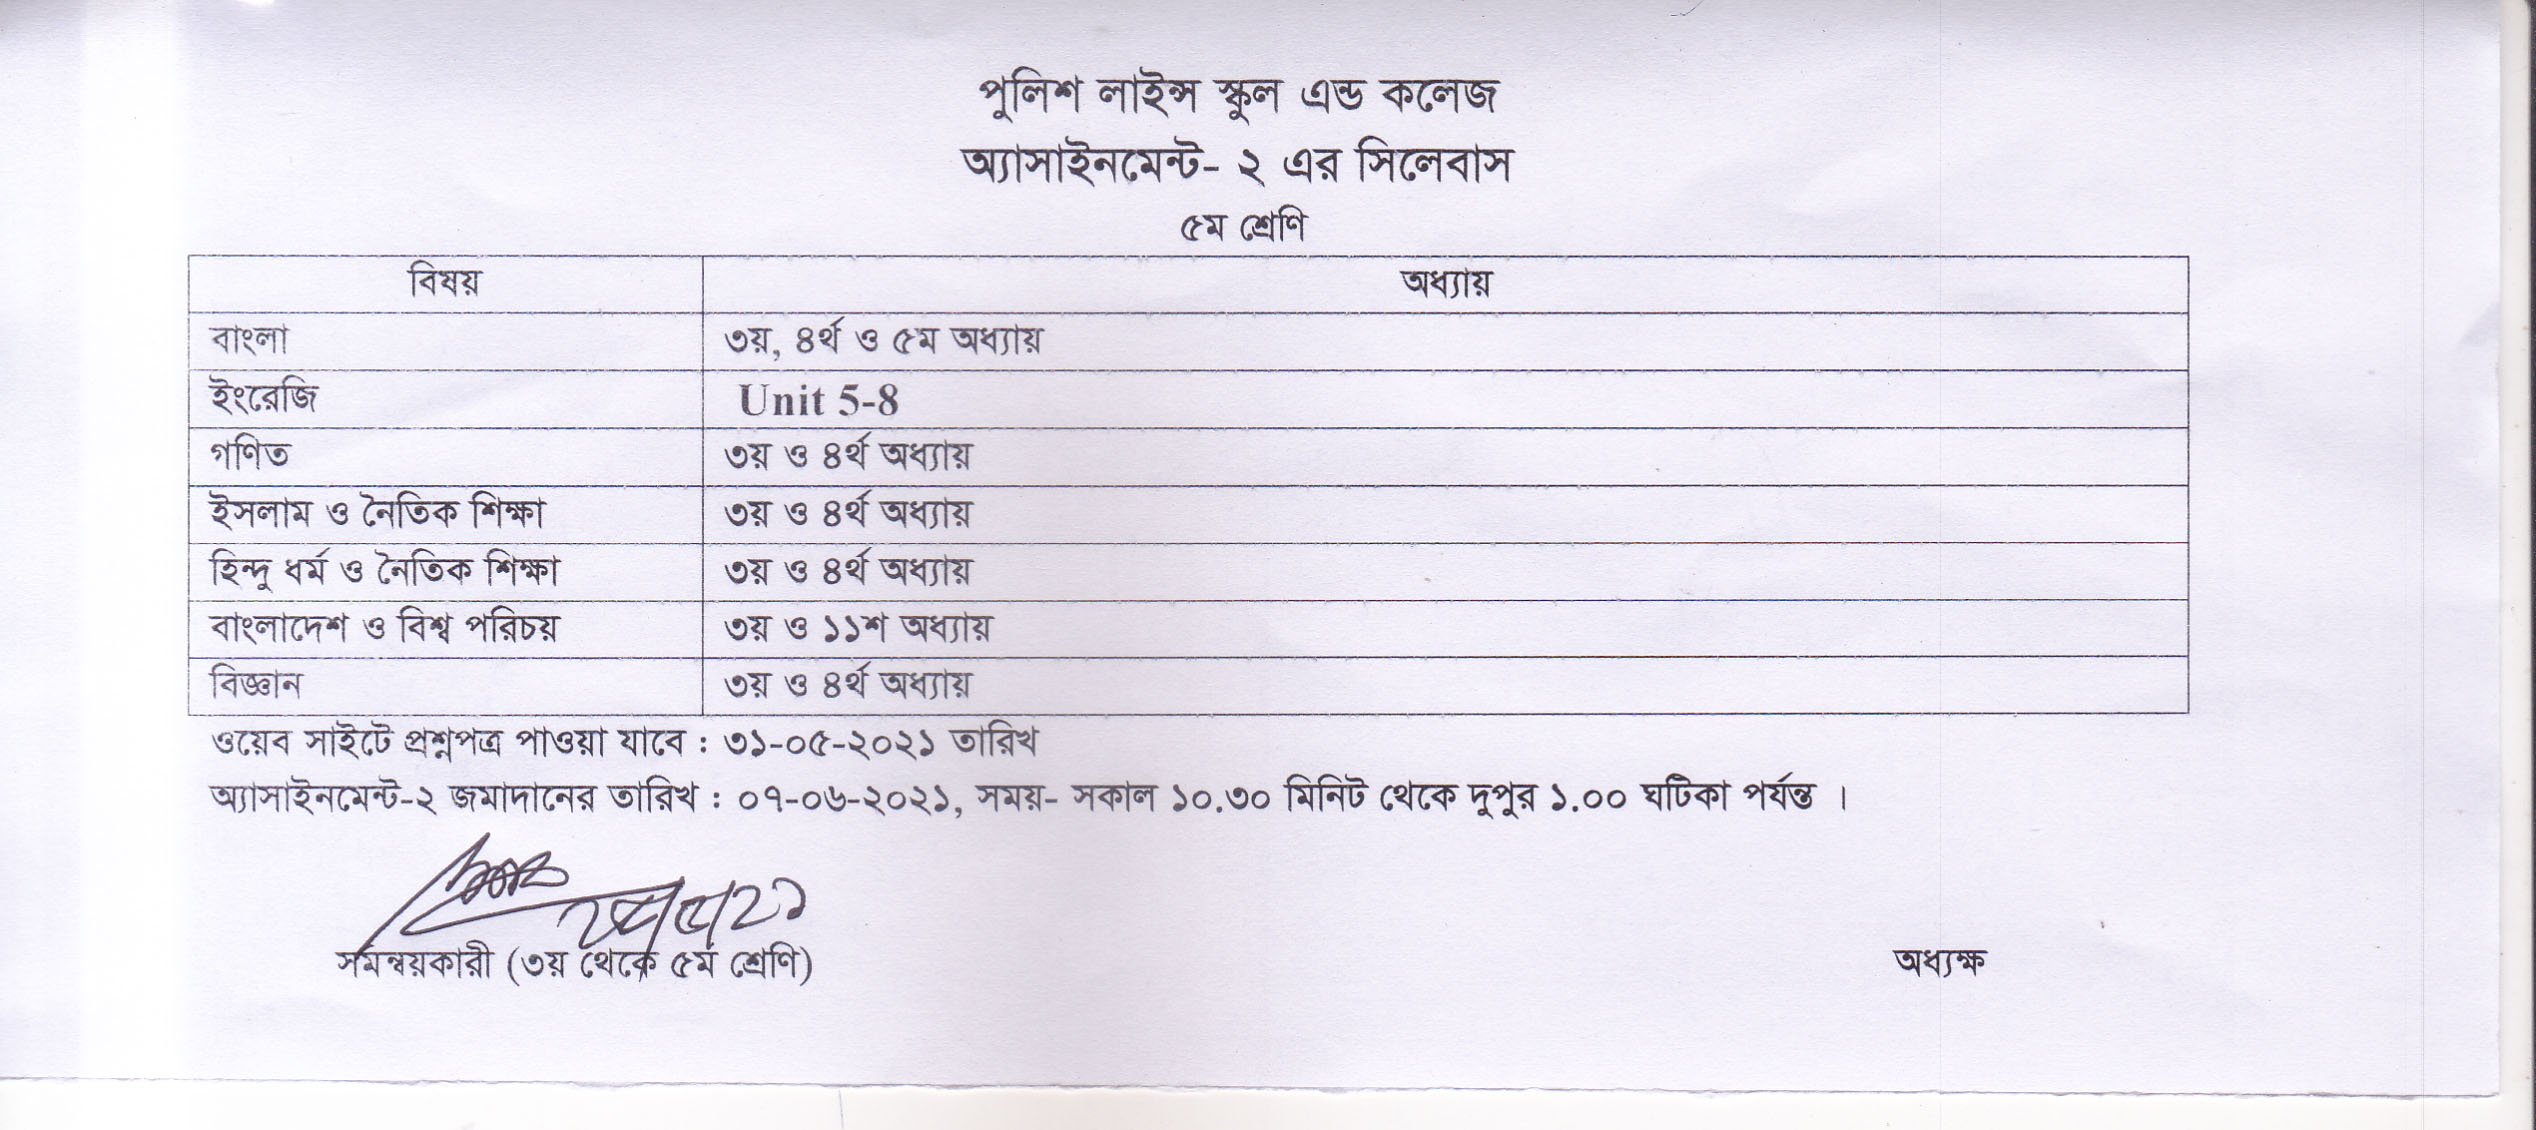 পুলিশ লাইন্স স্কুল এন্ড কলেজ
অ্যাসাইনমেন্ট- ২ এর সিলেবাস
৫ম শ্রেণি
বিষয় অধ্যায়
বাংলা ৩য়, ৪র্থ ও ৫ম অধ্যায়
ইংরেজি Unit 5-8
গণিত ৩য় ও ৪র্থ অধ্যায়
ইসলাম ও নৈতিক শিক্ষা ৩য় ও ৪র্থ অধ্যায়
হিন্দু ধর্ম ও নৈতিক শিক্ষা ৩য় ও ৪র্থ অধ্যায়
বাংলাদেশ ও বিশ্ব পরিচয় ৩য় ও ১১শ অধ্যায়
বিজ্ঞান ৩য় ও ৪র্থ অধ্যায়
ওয়েব সাইটে প্রশ্নপত্র পাওয়া যাবে : ৩১-০৫-২০২১ তারিখ
অ্যাসাইনমেন্ট-২ জমাদানের তারিখ : ০৭-০৬-২০২১, সময়- সকাল ১০.৩০ মিনিট থেকে দুপুর ১.০০ ঘটিকা পর্যন্ত ।
সমন্বয়কারী (৩য় থেকে ৫ম শ্রেণি) অধ্যক্ষ